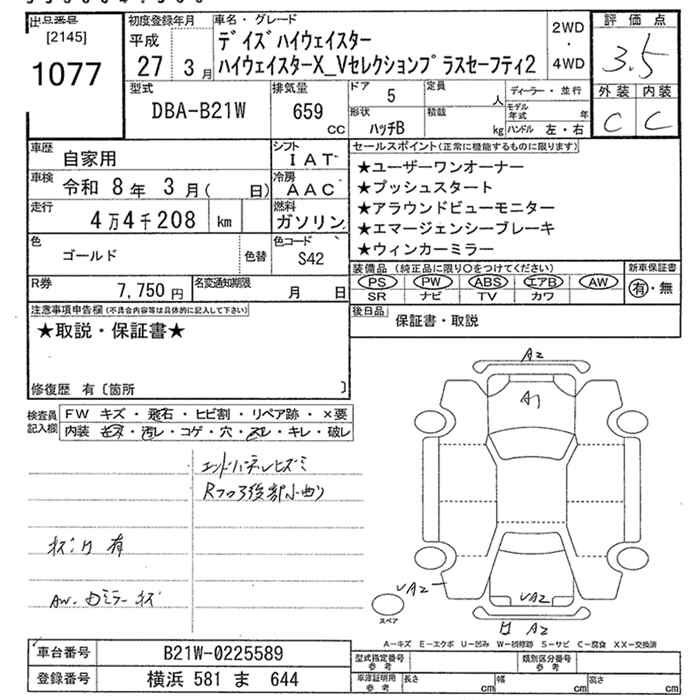 出品番号
[2145]
1077
初度登録年月
平成
27 3月
車名・グレード
デイズハイウェイスター
ハイウェイスターX_Vセレクションプラスセーフティ2
2WD
・
4WD
評価点
3.5
外装 内装
C C
型式
DBA-B21W
排気量
659
cc
ドア 5
定員 人
ディーラー・並行
形状 ハッチB
積載 kg
モデル年式 年
ハンドル 左・右
車歴 自家用
シフト
IAT
セールスポイント(正常に機能するものに限ります)
★ユーザーワンオーナー
★プッシュスタート
★アラウンドビューモニター
★エマージェンシーブレーキ
★ウィンカーミラー
車検 令和 8年 3月( 日)
冷房
AAC
走行 4万4千208 km
燃料
ガソリン
色 ゴールド
色替
色コード
S42
装備品(純正品に限り○をつけてください)
PS PW ABS エアB AW
SR ナビ TV カワ
新車保証書
有・無
R券 7,750円
名変通知期限 月 日
後日品 保証書・取説
注意事項申告欄(不具合内容等は具体的に記入して下さい)
★取説・保証書★
修復歴 有〔箇所 〕
検査員
記入欄
FW キズ・飛石・ヒビ割・リペア跡・×要
内装 キズ・汚レ・コゲ・穴・スレ・キレ・破レ
エンドパネルヒズミ
Rフロア後部小曲り
キズ凹有
AW・ミラーキズ
A2
A1
VA2
VA2
凹 A2
スペア
A-キズ E-エクボ U-凹み W-板修跡 S-サビ C-腐食 XX-交換済
車台番号 B21W-0225589
登録番号 横浜 581 ま 644
型式指定番号
参考
類別区分番号
参考
車庫証明用
参考
長さ cm
幅 cm
高さ cm